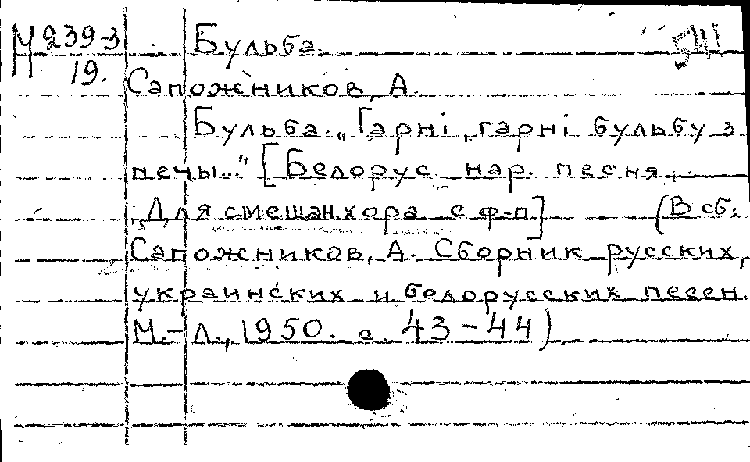 М 239-3 Бульба. 541
19.
Сапожников, А.
Бульба. „Гарні, гарні бульбу з
печы..." [Белорус. нар. песня.
Для смешан. хора с ф-п] (В сб.:
Сапожников, А. Сборник русских,
украинских и белорусских песен.
М.-Л., 1950. с. 43-44)